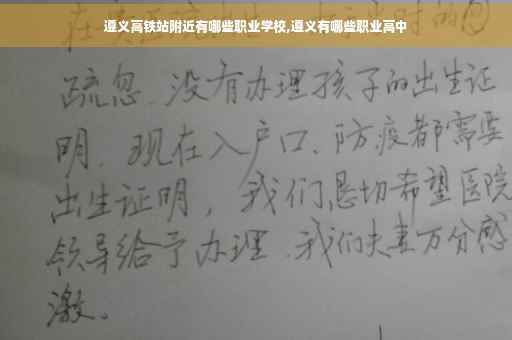 遵义高铁站附近有哪些职业学校,遵义有哪些职业高中
疏忽.没有办理孩子的出生证
明.现在入户口、防疫都需要
出生证明，我们恳切希望医院
领导给予办理.我们夫妻万分感
激。